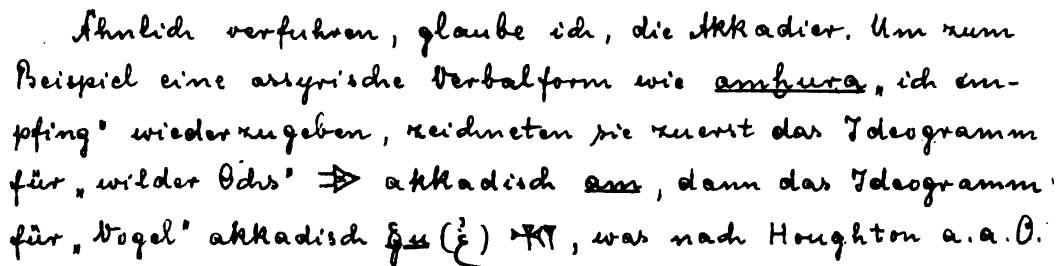 Ähnlich verfuhren, glaube ich, die Akkadier. Um zum
Beispiel eine assyrische Verbalform wie amḫura „ich em-
pfing" wiederzugeben, zeichneten sie zuerst das Ideogramm
für „wilder Ochs" akkadisch am, dann das Ideogramm
für „Vogel" akkadisch ḫu, was nach Houghton a.a.O.